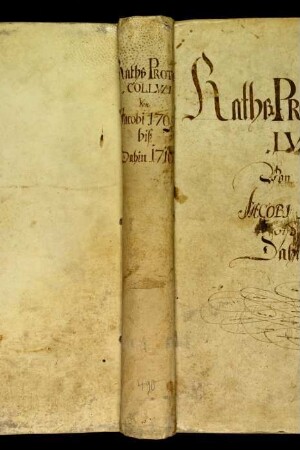 Raths Prot
COLLUM
Von
Jacobi 170
biß
Dahin 171
490
Raths Pro
.LU
Von
JACOBI
Dahi